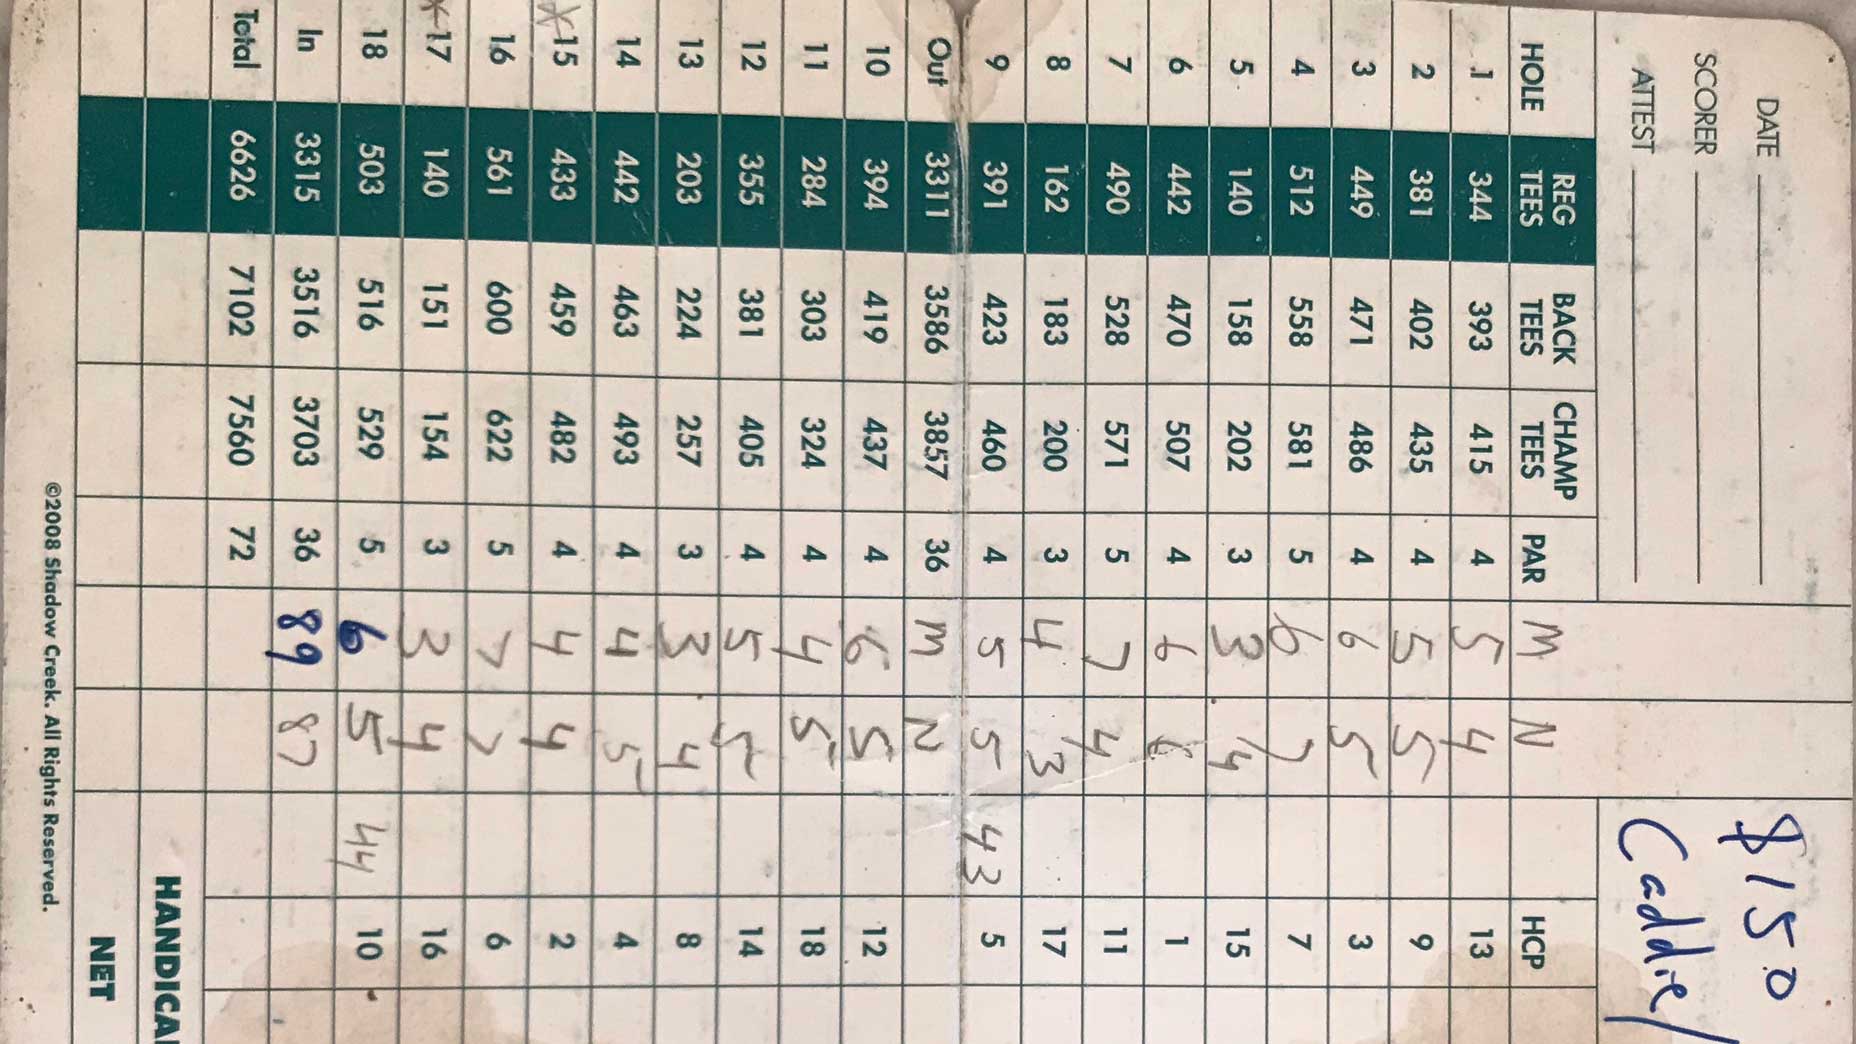 DATE $150
SCORER
ATTEST Caddie/
HOLE REG TEES BACK TEES CHAMP TEES PAR M N HCP
1 344 393 415 4 5 4 13
2 381 402 435 4 5 5 9
3 449 471 486 4 6 5 3
4 512 558 581 5 6 7 7
5 140 158 202 3 3 4 15
6 442 470 507 4 6 6 1
7 490 528 571 5 7 4 11
8 162 183 200 3 4 3 17
9 391 423 460 4 5 5 43 5
Out 3311 3586 3857 36 M N
10 394 419 437 4 6 5 12
11 284 303 324 4 4 5 18
12 355 381 405 4 5 5 14
13 203 224 257 3 3 4 8
14 442 463 493 4 4 5 4
*15 433 459 482 4 4 4 2
16 561 600 622 5 7 7 6
*17 140 151 154 3 3 4 16
18 503 516 529 5 6 5 44 10
In 3315 3516 3703 36 89 87
Total 6626 7102 7560 72
HANDICA
NET
©2008 Shadow Creek. All Rights Reserved.